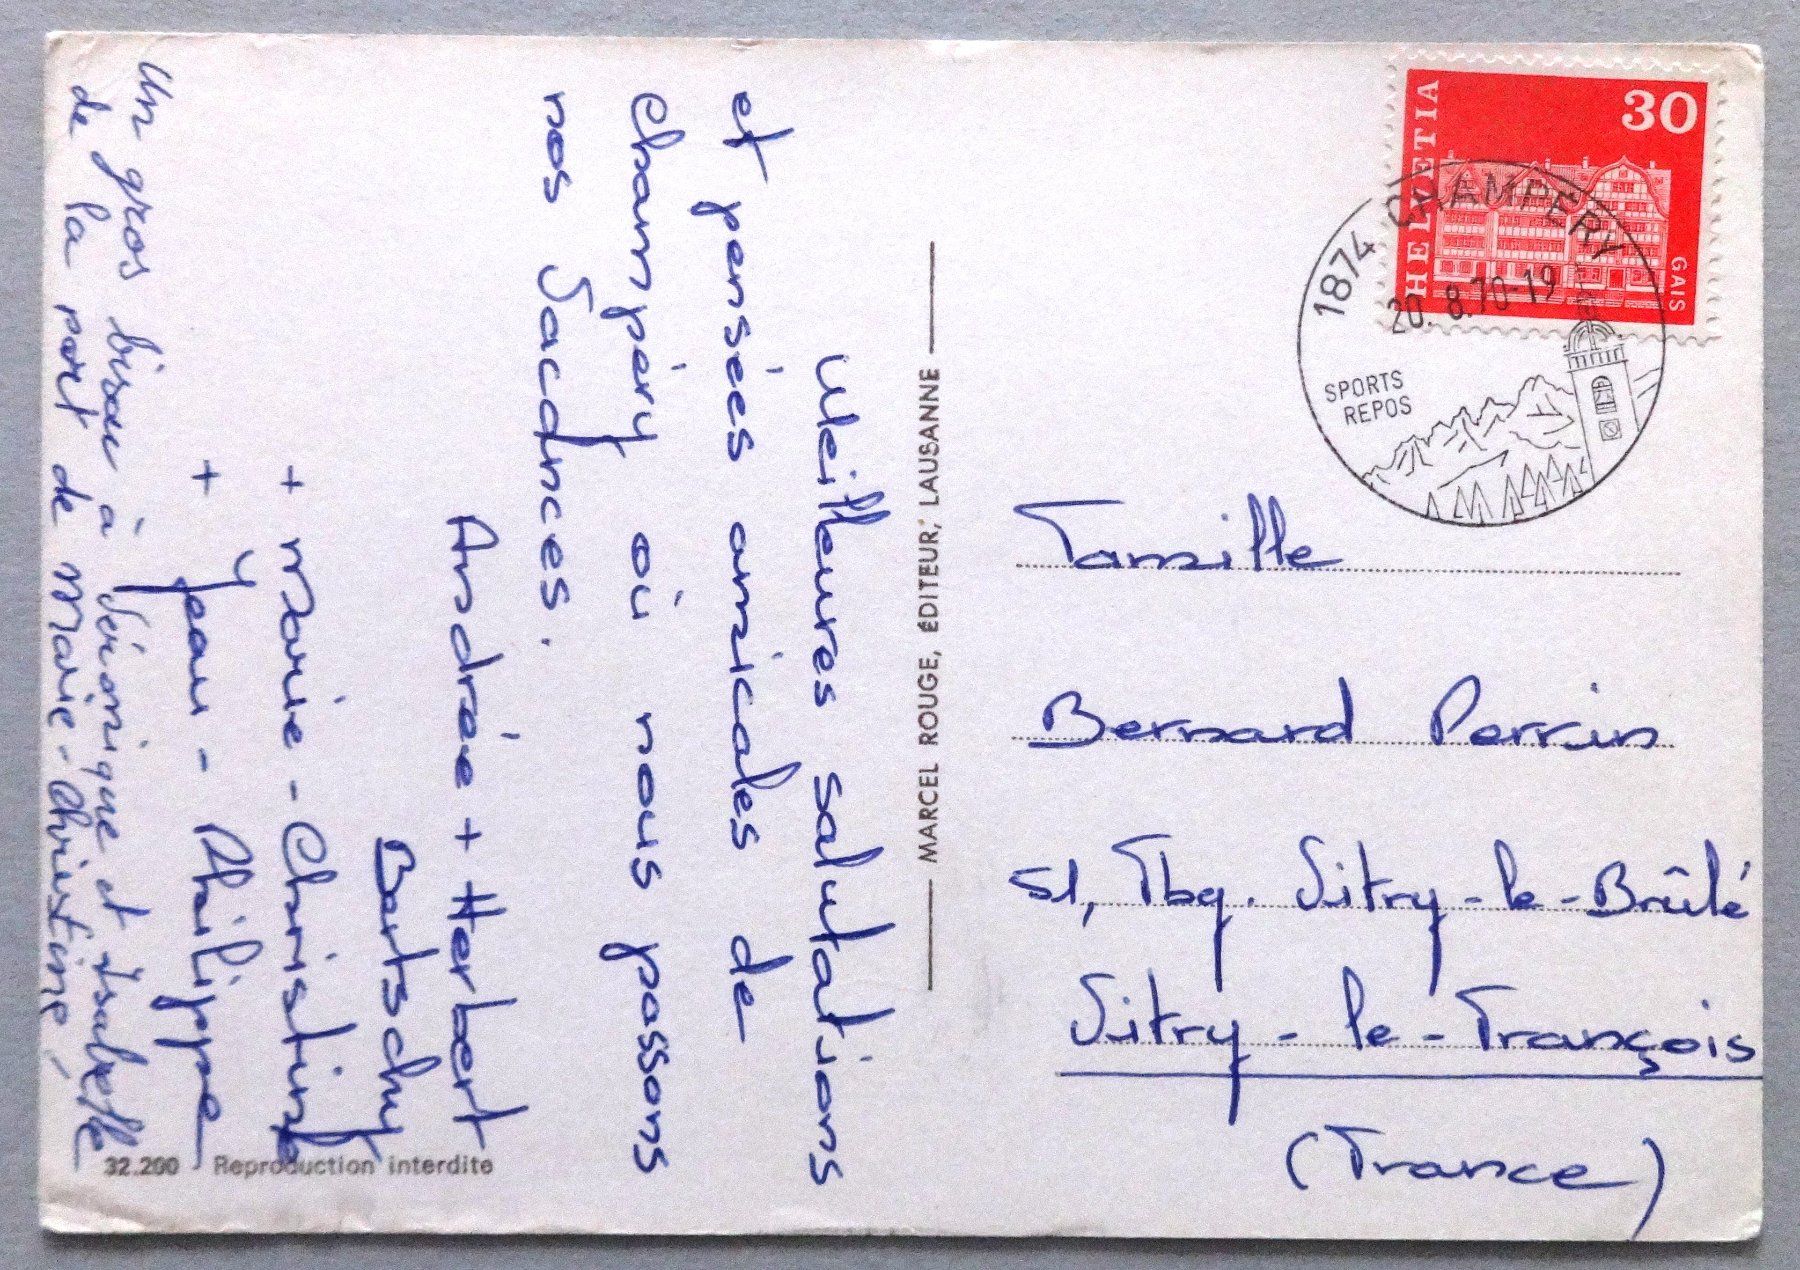 Meilleures salutations
et pensées amicales de
Champéry où nous passons
nos Vacances.
Andrée + Herbert
Bartschy
+ Marie-Christine
+ Jean-Philippe
Un gros bisou à Véronique et Isabelle
de la part de Marie-Christine.
MARCEL ROUGE, ÉDITEUR, LAUSANNE
32.200 Reproduction interdite
HELVETIA
30
GAIS
1874 CHAMPERY
20.8.70-19
SPORTS
REPOS
Famille
Bernard Perrin
51, Fbg. Vitry-le-Brûlé
Vitry-le-François
(France)